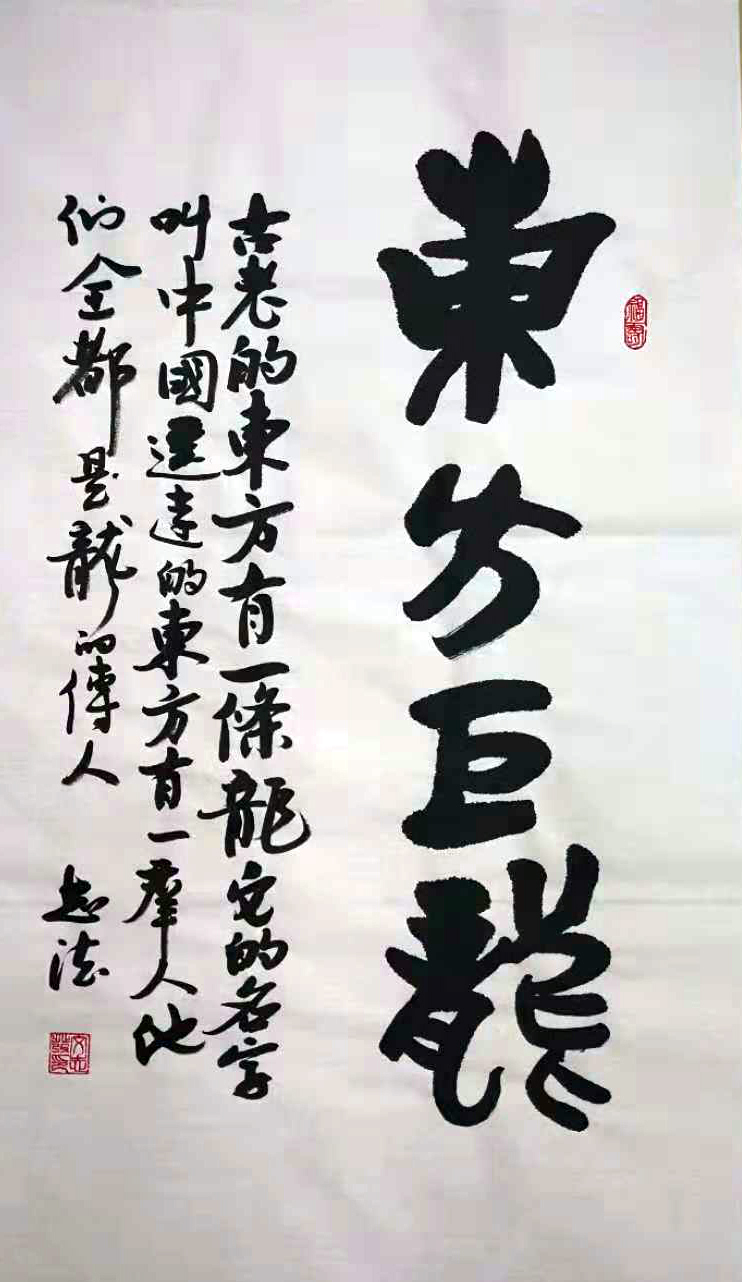 東方巨龍
古老的東方有一條龍它的名字
叫中國遥遠的東方有一羣人他
们全都是龍的傳人
志法